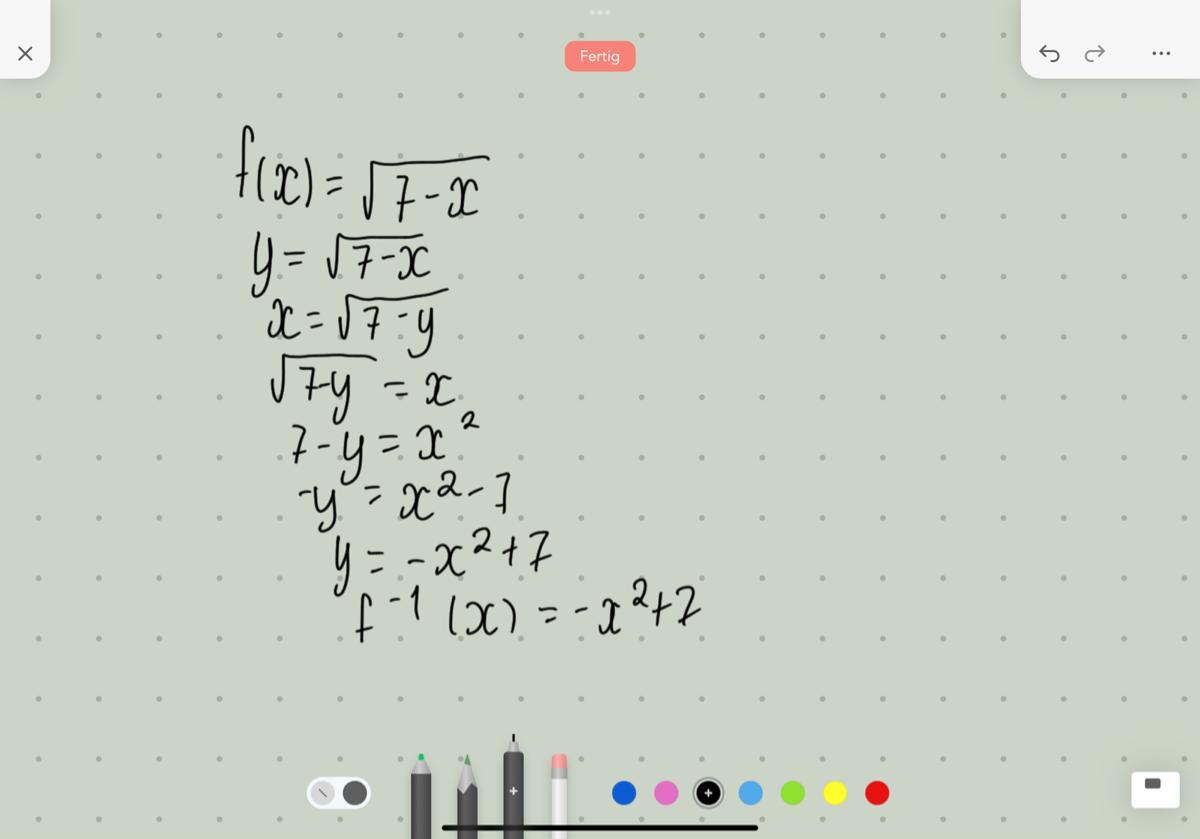 Fertig
f(x) = √7-x
y = √7-x
x = √7-y
√7-y = x
7-y = x²
-y = x²-7
y = -x²+7
f⁻¹ (x) = -x²+7